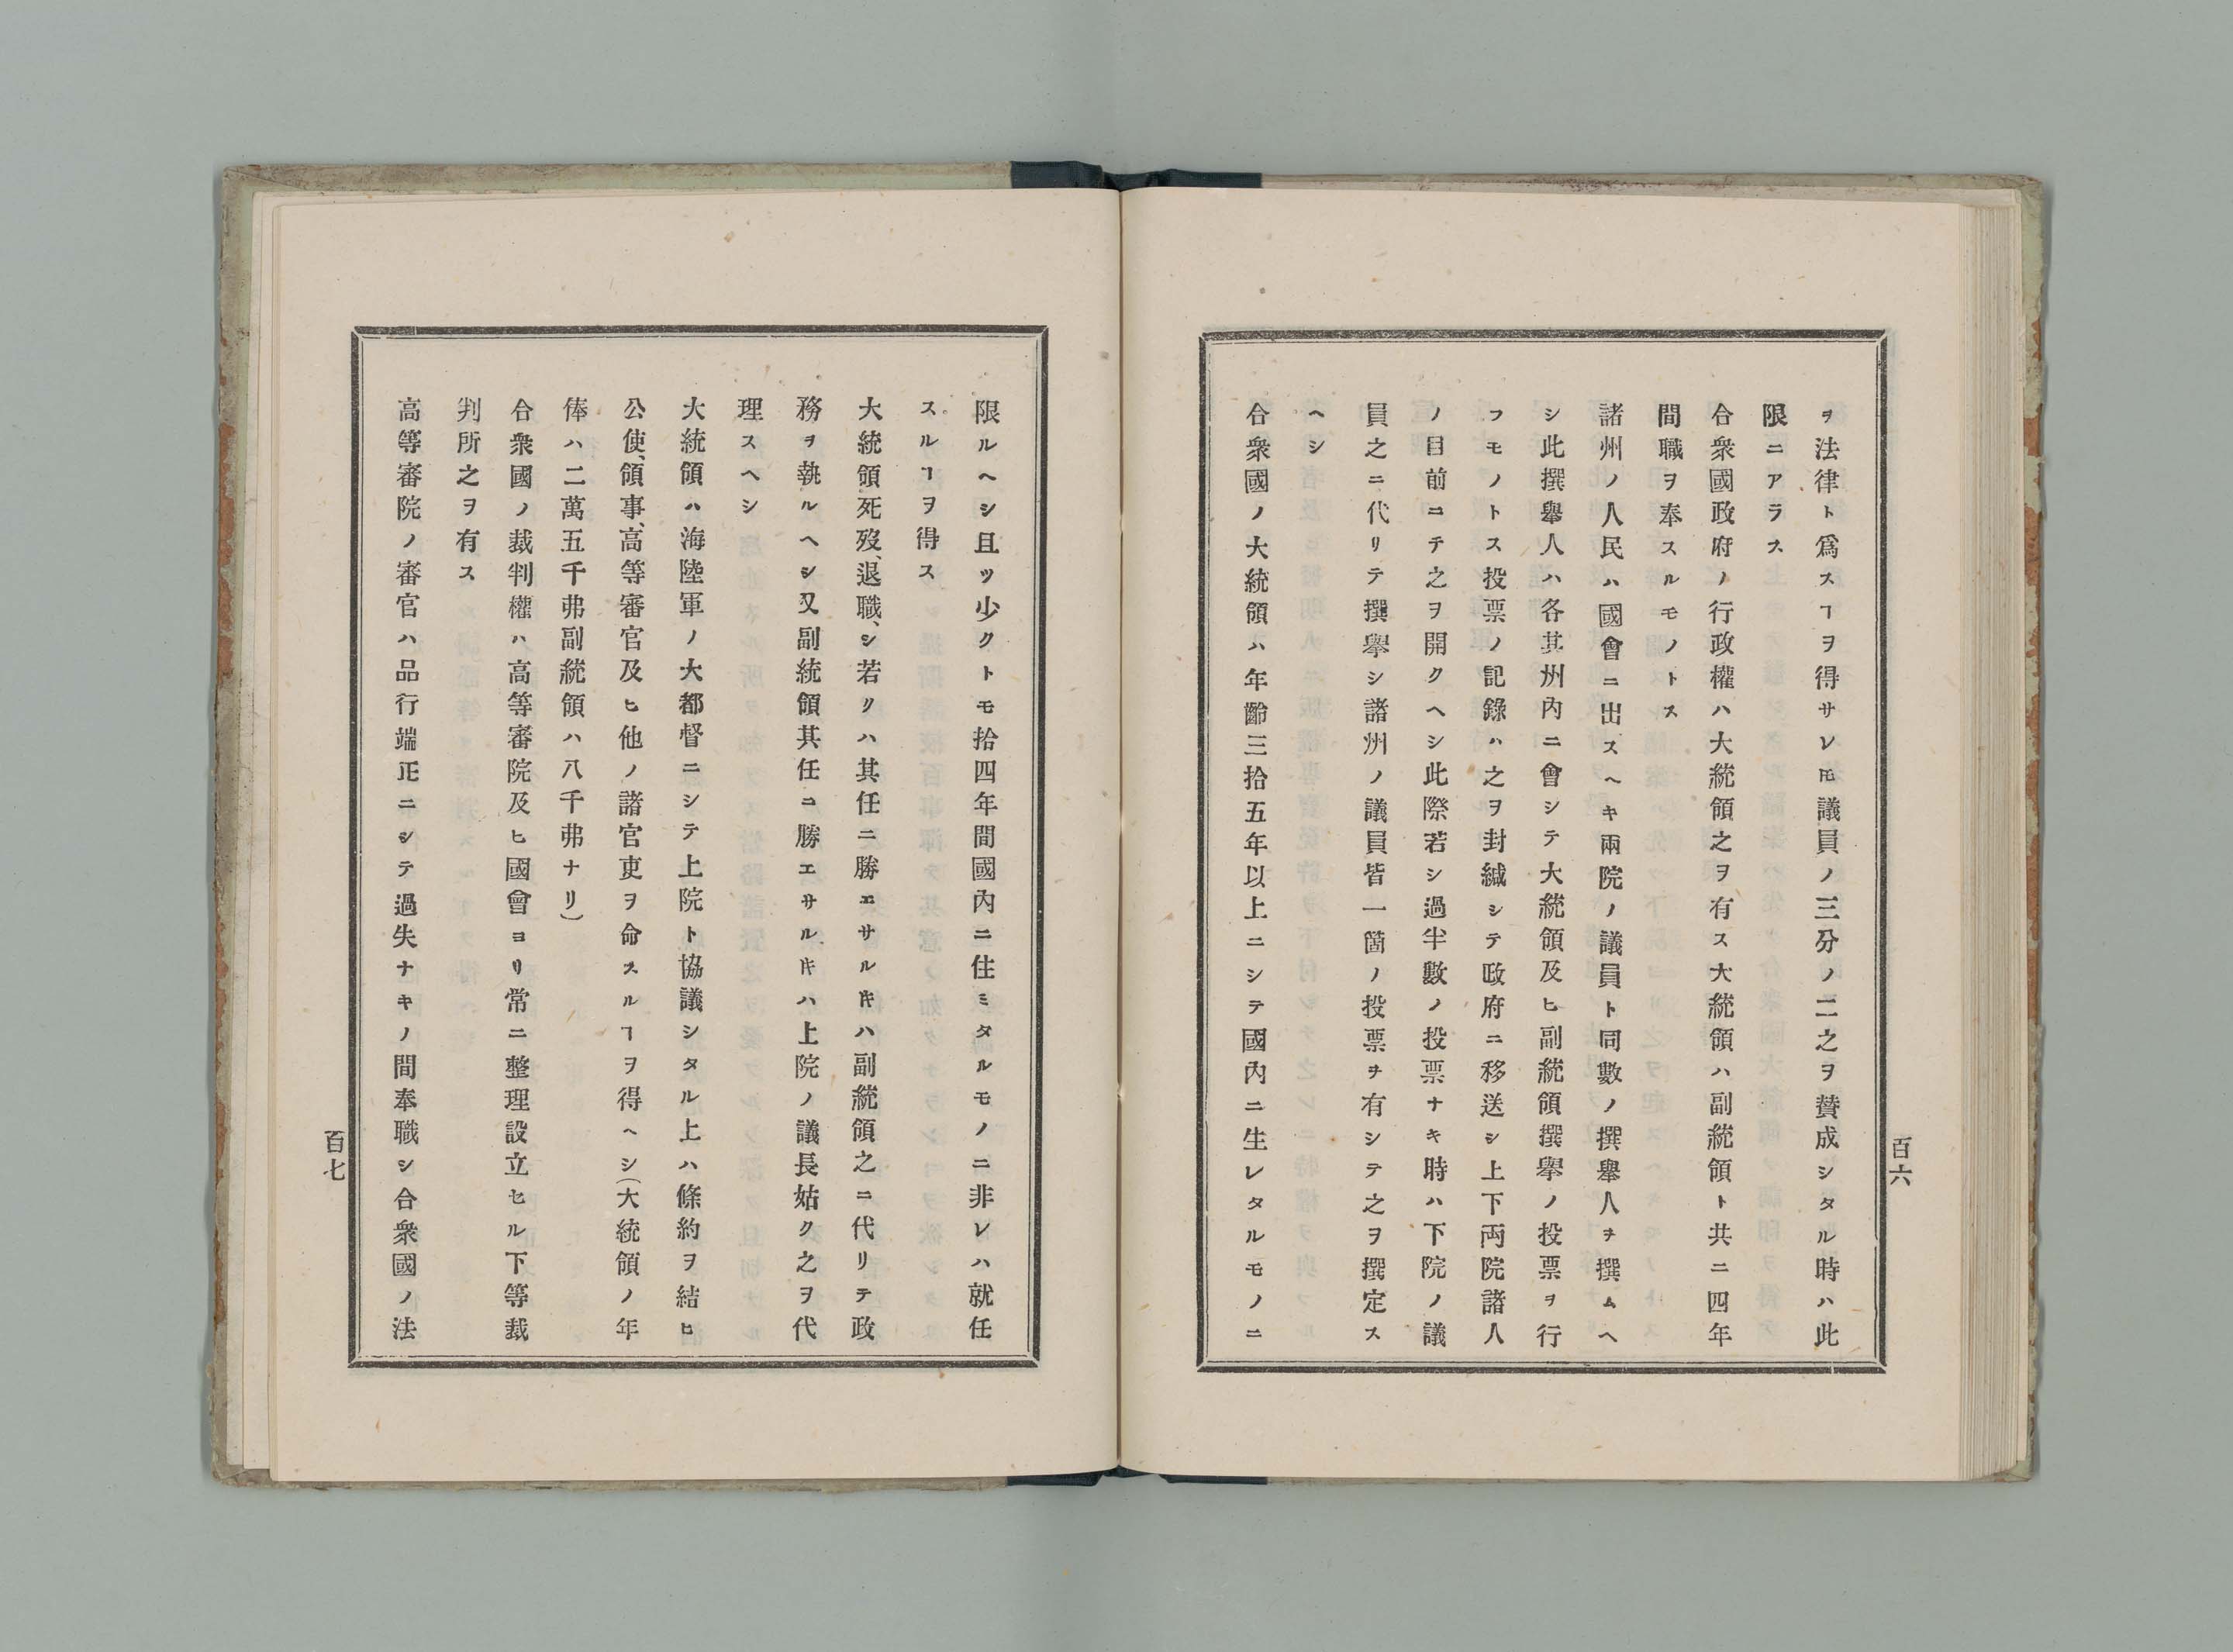 ヲ法律ト爲スヿヲ得サレ𪜈議員ノ三分ノ二之ヲ賛成シタル時ハ此
限ニアラス
合衆國政府ノ行政權ハ大統領之ヲ有ス大統領ハ副統領ト共ニ四年
間職ヲ奉スルモノトス
諸州ノ人民ハ國會ニ出スヘキ兩院ノ議員ト同數ノ撰擧人ヲ撰ムヘ
シ此撰擧人ハ各其州內ニ會シテ大統領及ヒ副統領撰擧ノ投票ヲ行
フモノトス投票ノ記錄ハ之ヲ封緘シテ政府ニ移送シ上下両院諸人
ノ目前ニテ之ヲ開クヘシ此際若シ過半數ノ投票ナキ時ハ下院ノ議
員之ニ代リテ撰擧シ諸州ノ議員皆一箇ノ投票ヲ有シテ之ヲ撰定ス
ヘシ
合衆國ノ大統領ハ年齡三拾五年以上ニシテ國內ニ生レタルモノニ
百六
限ルヘシ且ツ少クトモ拾四年間國內ニ住ミタルモノニ非レハ就任
スルヿヲ得ス
大統領死歿、退職、シ若クハ其任ニ勝エサル𪜀ハ副統領之ニ代リテ政
務ヲ執ルヘシ又副統領其任ニ勝エサル𪜀ハ上院ノ議長姑ク之ヲ代
理スヘシ
大統領ハ海陸軍ノ大都督ニシテ上院ト協議シタル上ハ條約ヲ結ヒ
公使、領事、高等審官及ヒ他ノ諸官吏ヲ命スルヿヲ得ヘシ(大統領ノ年
俸ハ二萬五千弗副統領ハ八千弗ナリ)
合衆國ノ裁判權ハ高等審院及ヒ國會ヨリ常ニ整理設立セル下等裁
判所之ヲ有ス
高等審院ノ審官ハ品行端正ニシテ過失ナキノ間奉職シ合衆國ノ法
百七